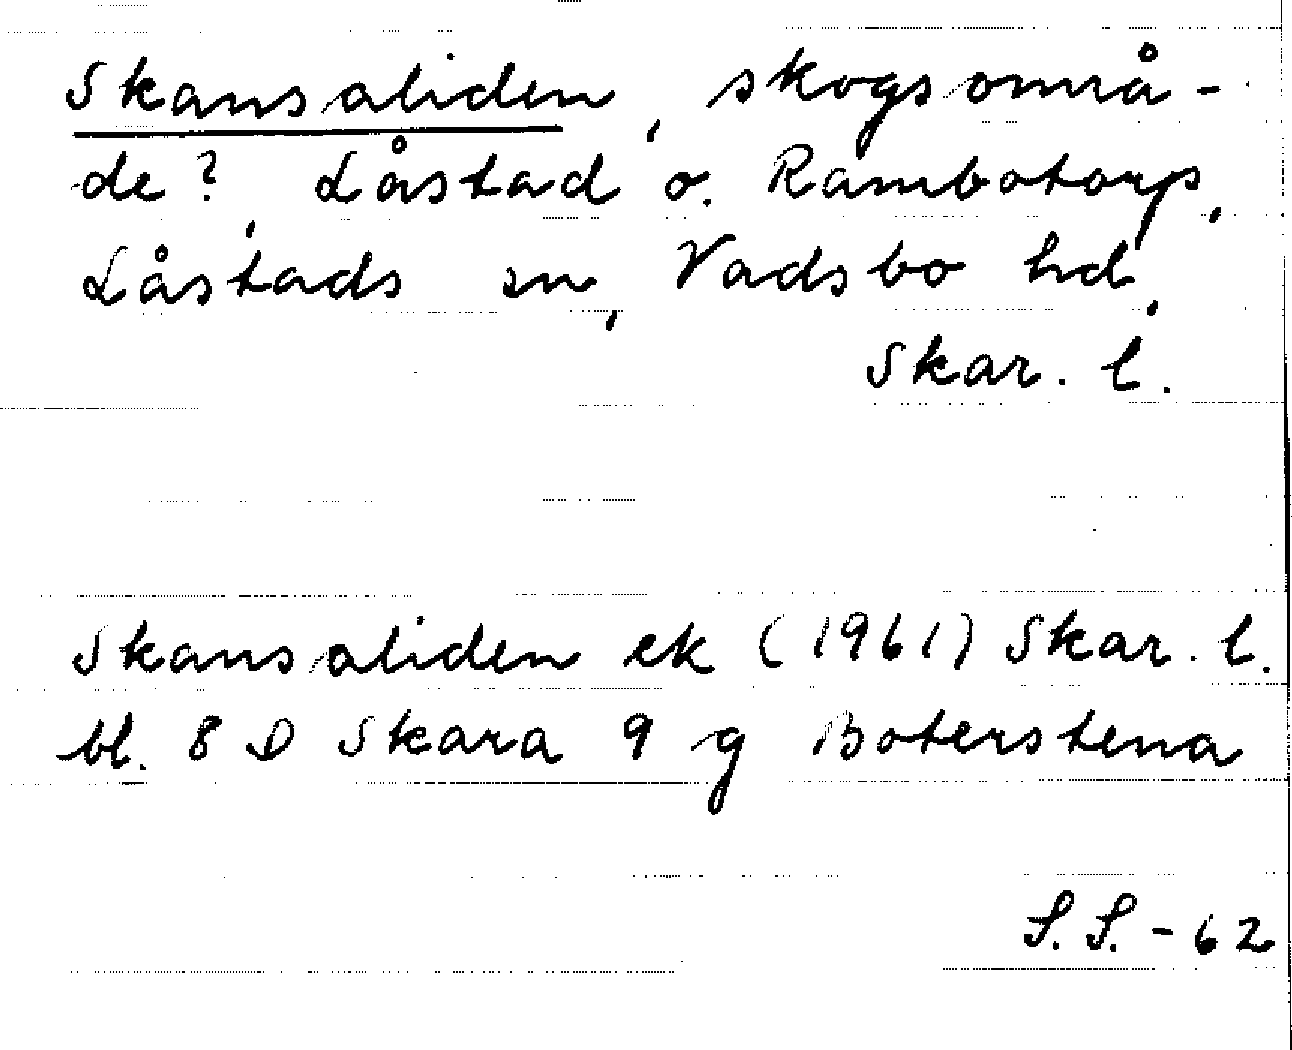 Skansaliden, skogsområ-
de?, Låstad o. Rambotorp,
Låstads sn, Vadsbo hd,
Skar. l.
Skansaliden ek (1961) Skar. l.
bl. 8 D Skara 9 g Boterstena
S. S. - 62